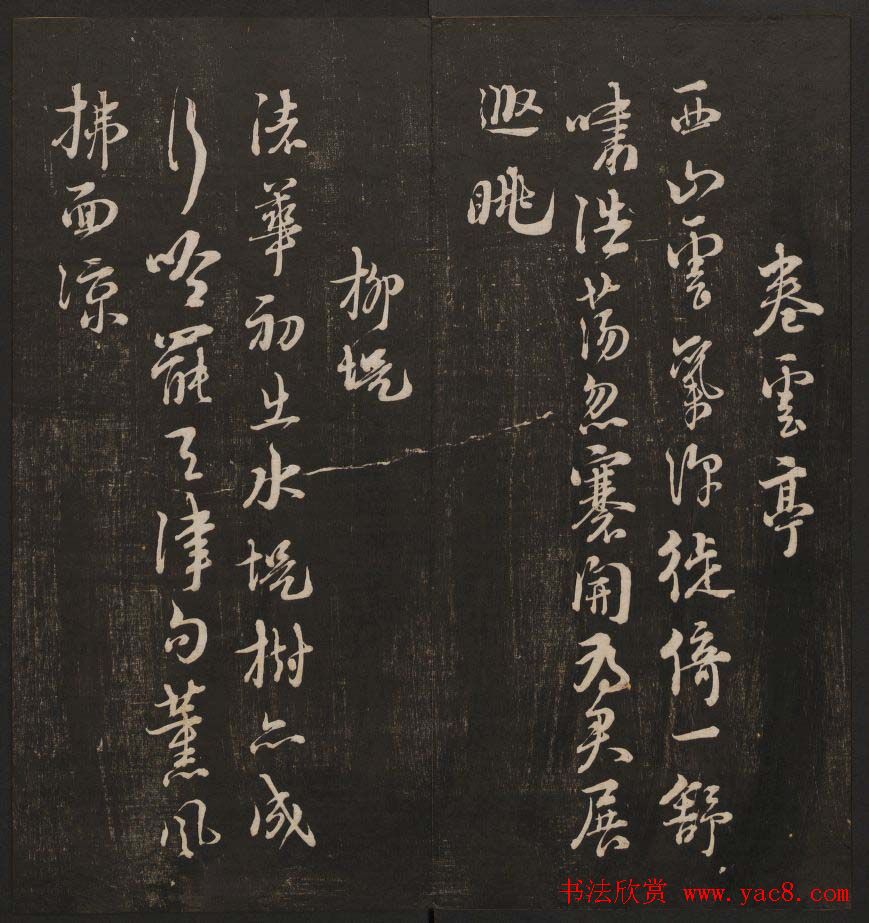 卷雲亭
西山雲氣深徙倚一舒
嘯浩蕩忽褰開為君展
遐眺
柳堤
渚華初出水堤樹亦成
行吟罷天津句薰風
拂面凉
书法欣赏 www.yac8.com